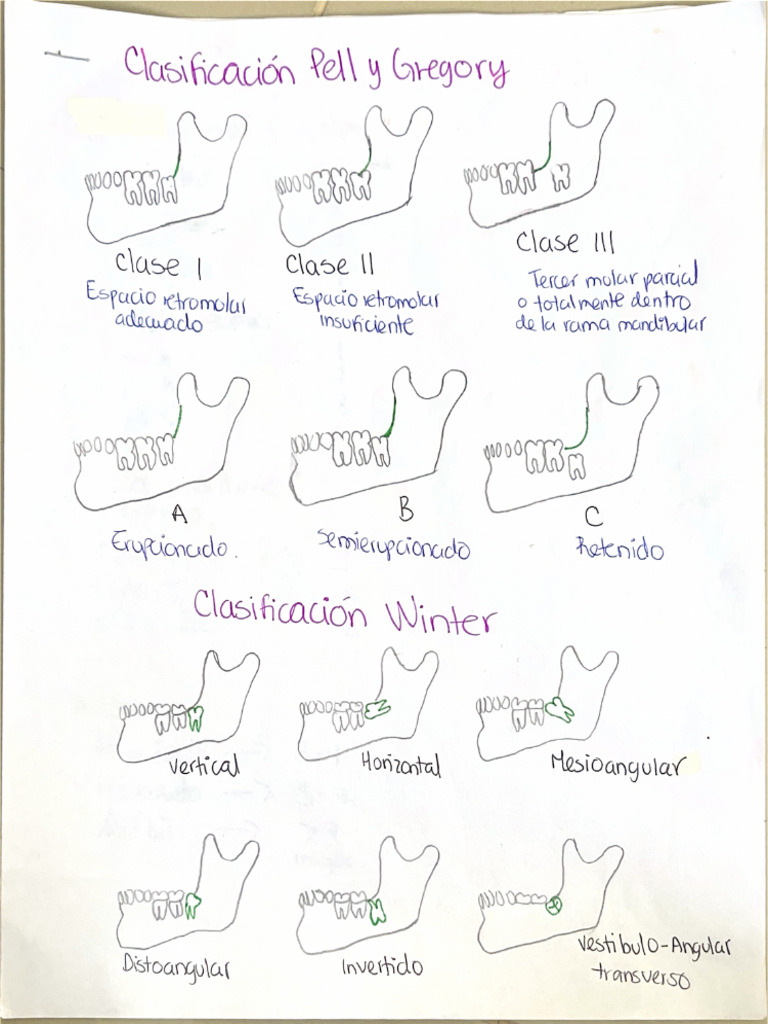 Clasificación Pell y Gregory
Clase I
Clase II
Clase III
Espacio retromolar
adecuado
Espacio retromolar
insuficiente
Tercer molar parcial
o totalmente dentro
de la rama mandibular
A
B
C
Erupcionado.
Semierupcionado
Retenido
Clasificación Winter
Vertical
Horizontal
Mesioangular
Distoangular
Invertido
Vestibulo-Angular
transverso